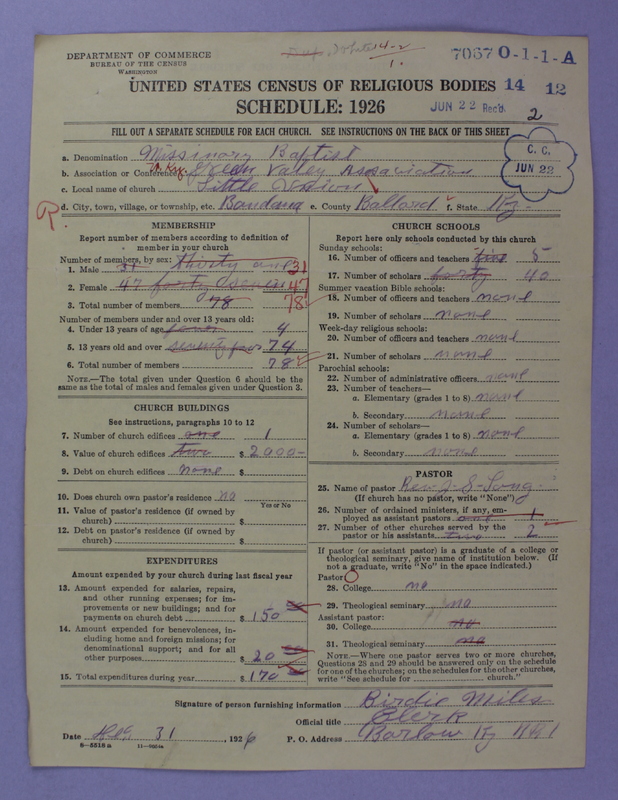 DEPARTMENT OF COMMERCE
BUREAU OF THE CENSUS
WASHINGTON
14-2
1.
7067 O-1-1-A
UNITED STATES CENSUS OF RELIGIOUS BODIES 14 12
SCHEDULE: 1926
JUN 22 Rec'd.
2
FILL OUT A SEPARATE SCHEDULE FOR EACH CHURCH. SEE INSTRUCTIONS ON THE BACK OF THIS SHEET
C. C.
JUN 22
a. Denomination Missinory Baptist
b. Association or Conference W. Ky. Valley Assaviation
c. Local name of church Little Union
d. City, town, village, or township, etc. Bandana e. County Ballard f. State Ky-
R.
MEMBERSHIP
Report number of members according to definition of
member in your church
Number of members, by sex: thirty one
1. Male 31 31
2. Female 47 forty seven 47
3. Total number of members 78 78
Number of members under and over 13 years old:
4. Under 13 years of age four 4
5. 13 years old and over seventy four 74
6. Total number of members 78
NOTE.—The total given under Question 6 should be the
same as the total of males and females given under Question 3.
CHURCH BUILDINGS
See instructions, paragraphs 10 to 12
7. Number of church edifices one 1
8. Value of church edifices two $ 2000-
9. Debt on church edifices none $
10. Does church own pastor's residence no
Yes or No
11. Value of pastor's residence (if owned by
church) $
12. Debt on pastor's residence (if owned by
church) $
EXPENDITURES
Amount expended by your church during last fiscal year
13. Amount expended for salaries, repairs,
and other running expenses; for im-
provements or new buildings; and for
payments on church debt $ 150
14. Amount expended for benevolences, in-
cluding home and foreign missions; for
denominational support; and for all
other purposes $ 20
15. Total expenditures during year $ 170
CHURCH SCHOOLS
Report here only schools conducted by this church
Sunday schools:
16. Number of officers and teachers five 5
17. Number of scholars forty 40
Summer vacation Bible schools:
18. Number of officers and teachers none
19. Number of scholars none
Week-day religious schools:
20. Number of officers and teachers none
21. Number of scholars none
Parochial schools:
22. Number of administrative officers none
23. Number of teachers—
a. Elementary (grades 1 to 8) none
b. Secondary none
24. Number of scholars—
a. Elementary (grades 1 to 8) none
b. Secondary none
PASTOR
25. Name of pastor Rev. J-S-Long-
(If church has no pastor, write "None")
26. Number of ordained ministers, if any, em-
ployed as assistant pastors one 1
27. Number of other churches served by the
pastor or his assistants two 2
If pastor (or assistant pastor) is a graduate of a college or
theological seminary, give name of institution below. (If
not a graduate, write "No" in the space indicated.)
Pastor:
28. College no
29. Theological seminary no
Assistant pastor:
30. College no
31. Theological seminary no
NOTE.—Where one pastor serves two or more churches,
Questions 28 and 29 should be answered only on the schedule
for one of the churches; on the schedules for the other churches,
write "See schedule for church."
Signature of person furnishing information Birdie Miles
Official title Clerk
Date Dec, 31, 1926 P. O. Address Barlow Ky
8—5518 a 11—9204a